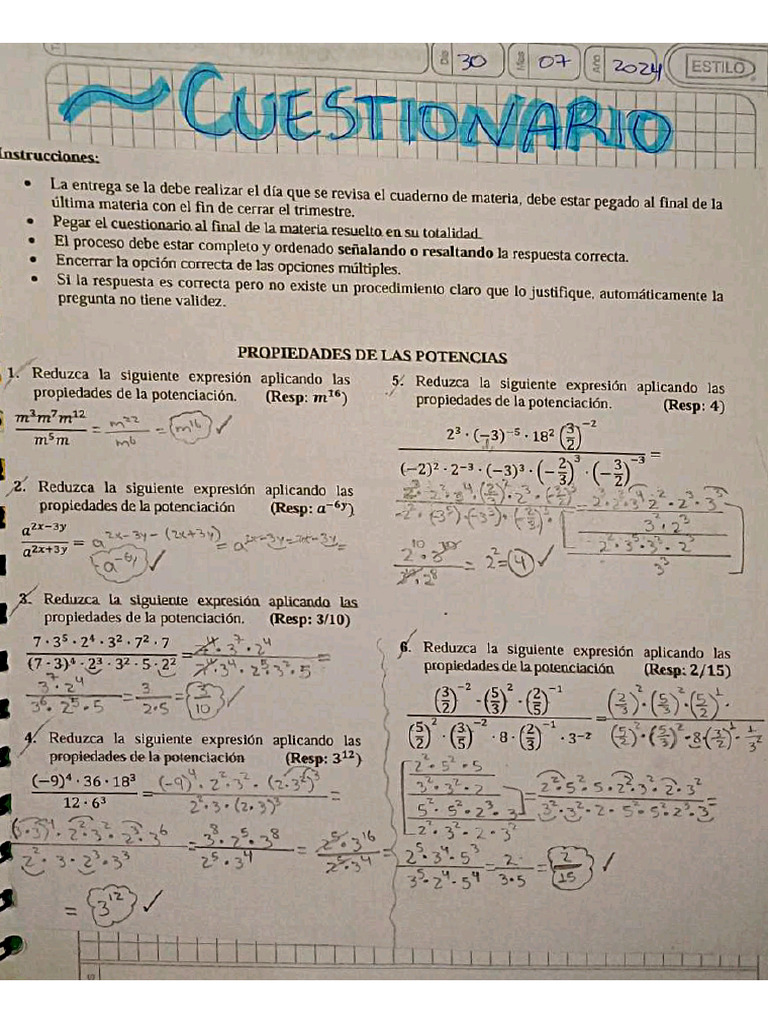 Día 30 Mes 07 Año 2024 ESTILO
~CUESTIONARIO
Instrucciones:
• La entrega se la debe realizar el día que se revisa el cuaderno de materia, debe estar pegado al final de la
última materia con el fin de cerrar el trimestre.
• Pegar el cuestionario al final de la materia resuelto en su totalidad
• El proceso debe estar completo y ordenado señalando o resaltando la respuesta correcta.
• Encerrar la opción correcta de las opciones múltiples.
• Si la respuesta es correcta pero no existe un procedimiento claro que lo justifique, automáticamente la
pregunta no tiene validez.
PROPIEDADES DE LAS POTENCIAS
1. Reduzca la siguiente expresión aplicando las
propiedades de la potenciación. (Resp: m^16)
m^3m^7m^12 / m^5m = m^22 / m^6 = m^16 ✓
2. Reduzca la siguiente expresión aplicando las
propiedades de la potenciación (Resp: a^−6y)
a^2x−3y / a^2x+3y = a^2x−3y−(2x+3y) = a^2x−3y−2x−3y =
a^−6y ✓
3. Reduzca la siguiente expresión aplicando las
propiedades de la potenciación. (Resp: 3/10)
7 · 3^5 · 2^4 · 3^2 · 7^2 · 7 / (7 · 3)^4 · 2^3 · 3^2 · 5 · 2^2 = 7^4 · 3^7 · 2^4 / 7^4 · 3^4 · 2^5 · 3^2 · 5 =
3^7 · 2^4 / 3^6 · 2^5 · 5 = 3 / 2·5 = 3/10 ✓
4. Reduzca la siguiente expresión aplicando las
propiedades de la potenciación (Resp: 3^12)
(−9)^4 · 36 · 18^3 / 12 · 6^3 = (−9)^4 · 2^2 · 3^2 · (2·3^2)^3 / 2^2 · 3 · (2·3)^3 =
(3·3)^4 · 2^2 · 3^2 · 2^3 · 3^6 / 2^2 · 3 · 2^3 · 3^3 = 3^8 · 2^5 · 3^8 / 2^5 · 3^4 = 2^5 · 3^16 / 2^5 · 3^4
= 3^12 ✓
5. Reduzca la siguiente expresión aplicando las
propiedades de la potenciación. (Resp: 4)
2^3 · (−3)^−5 · 18^2 (3/2)^−2 / (−2)^2 · 2^−3 · (−3)^3 · (−2/3)^3 · (−3/2)^−3 =
= 2^2 = 4 ✓
6. Reduzca la siguiente expresión aplicando las
propiedades de la potenciación (Resp: 2/15)
(3/2)^−2 · (5/3)^2 · (2/5)^−1 / (5/2)^2 · (3/5)^−2 · 8 · (2/3)^−1 · 3^−2 = (2/3)^2 · (5/3)^2 · (5/2)^1 · / (5/2)^2 · (5/3)^2 · 8 (3/2)^1 · 1/3^2 =
2^2 · 5^2 · 5 / 3^2 · 3^2 · 2
5^2 · 5^2 · 2^3 · 3 / 2^2 · 3^2 · 2 · 3^2
= 2^2 · 5^2 · 5 · 2^2 · 3^2 · 2 · 3^2 / 3^2 · 3^2 · 2 · 5^2 · 5^2 · 2^3 · 3 =
2^5 · 3^4 · 5^3 / 3^5 · 2^4 · 5^4 = 2 / 3·5 = 2/15 ✓